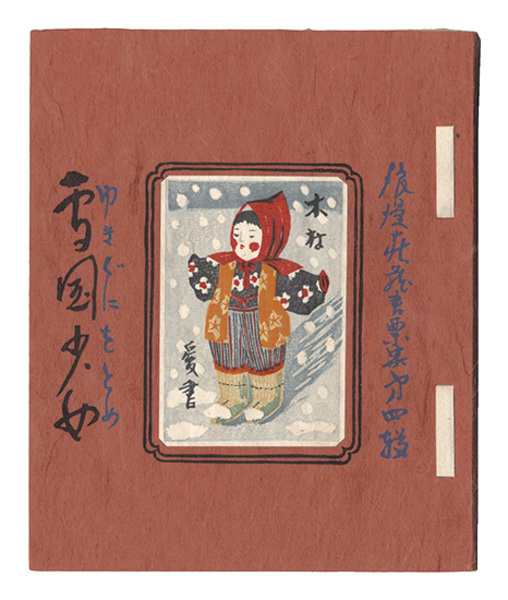 荘蔵書票集才四輯
木村
愛書
ゆきぐにをとめ
雪国少女